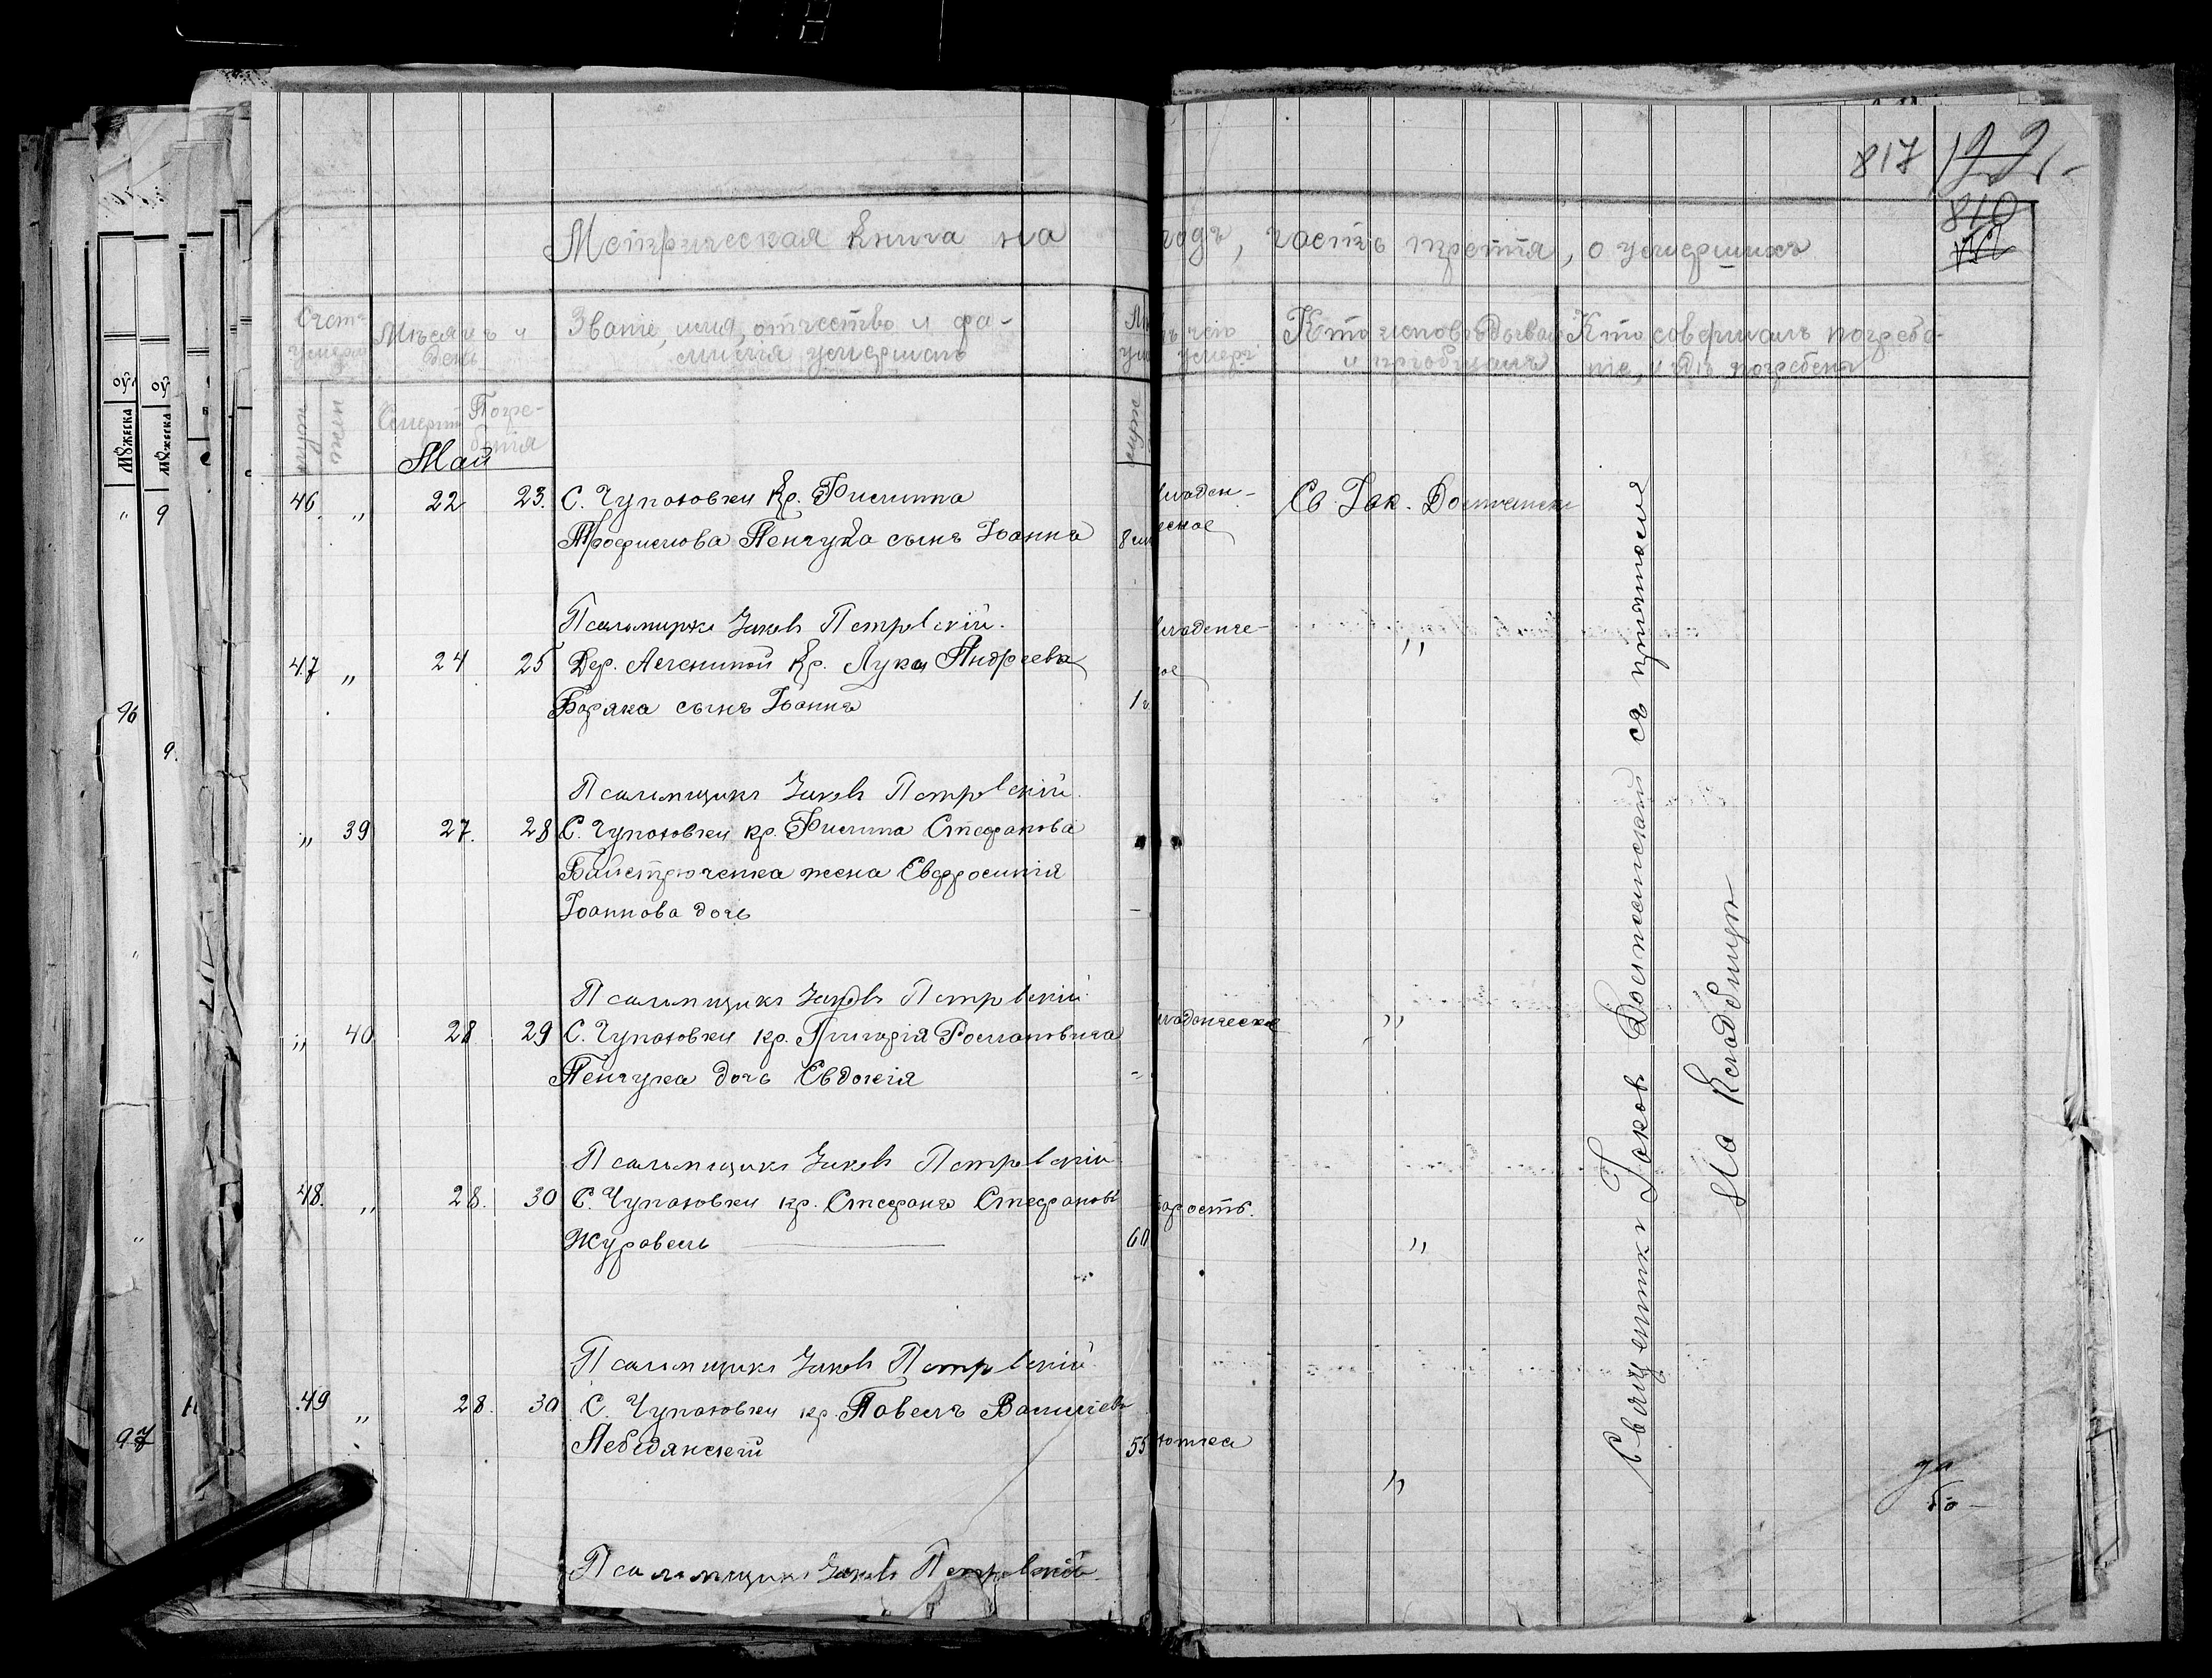 817
810
Метрическая книга на годъ, часть третія, о умершихъ
Счетъ умерш
Мѣсяцъ и день
Званіе, имя, отчество и фамилія умершаго
Кто исповѣдывалъ и пріобщалъ
Кто совершалъ погребеніе, и гдѣ погребены
муж
жен
Смерти
Погребенія
муж
Май
46 „ 22 23. С. Чупаховки Кр. Филиппа
Трофимова Пенчука сынъ Іоаннъ 8
младенческое
Св. Іак.
Псаломщикъ Іаковъ Петровскій.
47 „ 24 25 Дер. Кр. Луки Андреева
Боряка сынъ Іоаннъ 1
младенче-
ое
„
Псаломщикъ Іаковъ Петровскій.
„ 39 27. 28 С. Чупаховки кр. Филиппа Стефанова
жена Евфросинія
Іоаннова дочь –
Псаломщикъ Іаковъ Петровскій.
„ 40 28 29 С. Чупаховки кр. Григорія Романовича
Пенчука дочь Евдокія -
младенческое
„
Псаломщикъ Іаковъ Петровскій
48. „ 28. 30 С. Чупаховки кр. Стефанъ Стефановъ
Журавель 60
арость.
„
Псаломщикъ Іаковъ Петровскій.
49 „ 28. 30 С. Чупаховки кр. Павелъ Василіевъ
Лебедянскій 55
„
Псаломщикъ Іаковъ Петровскій.
Священникъ Іаковъ съ причтомъ
На кладбищѣ
96
9
9.
97